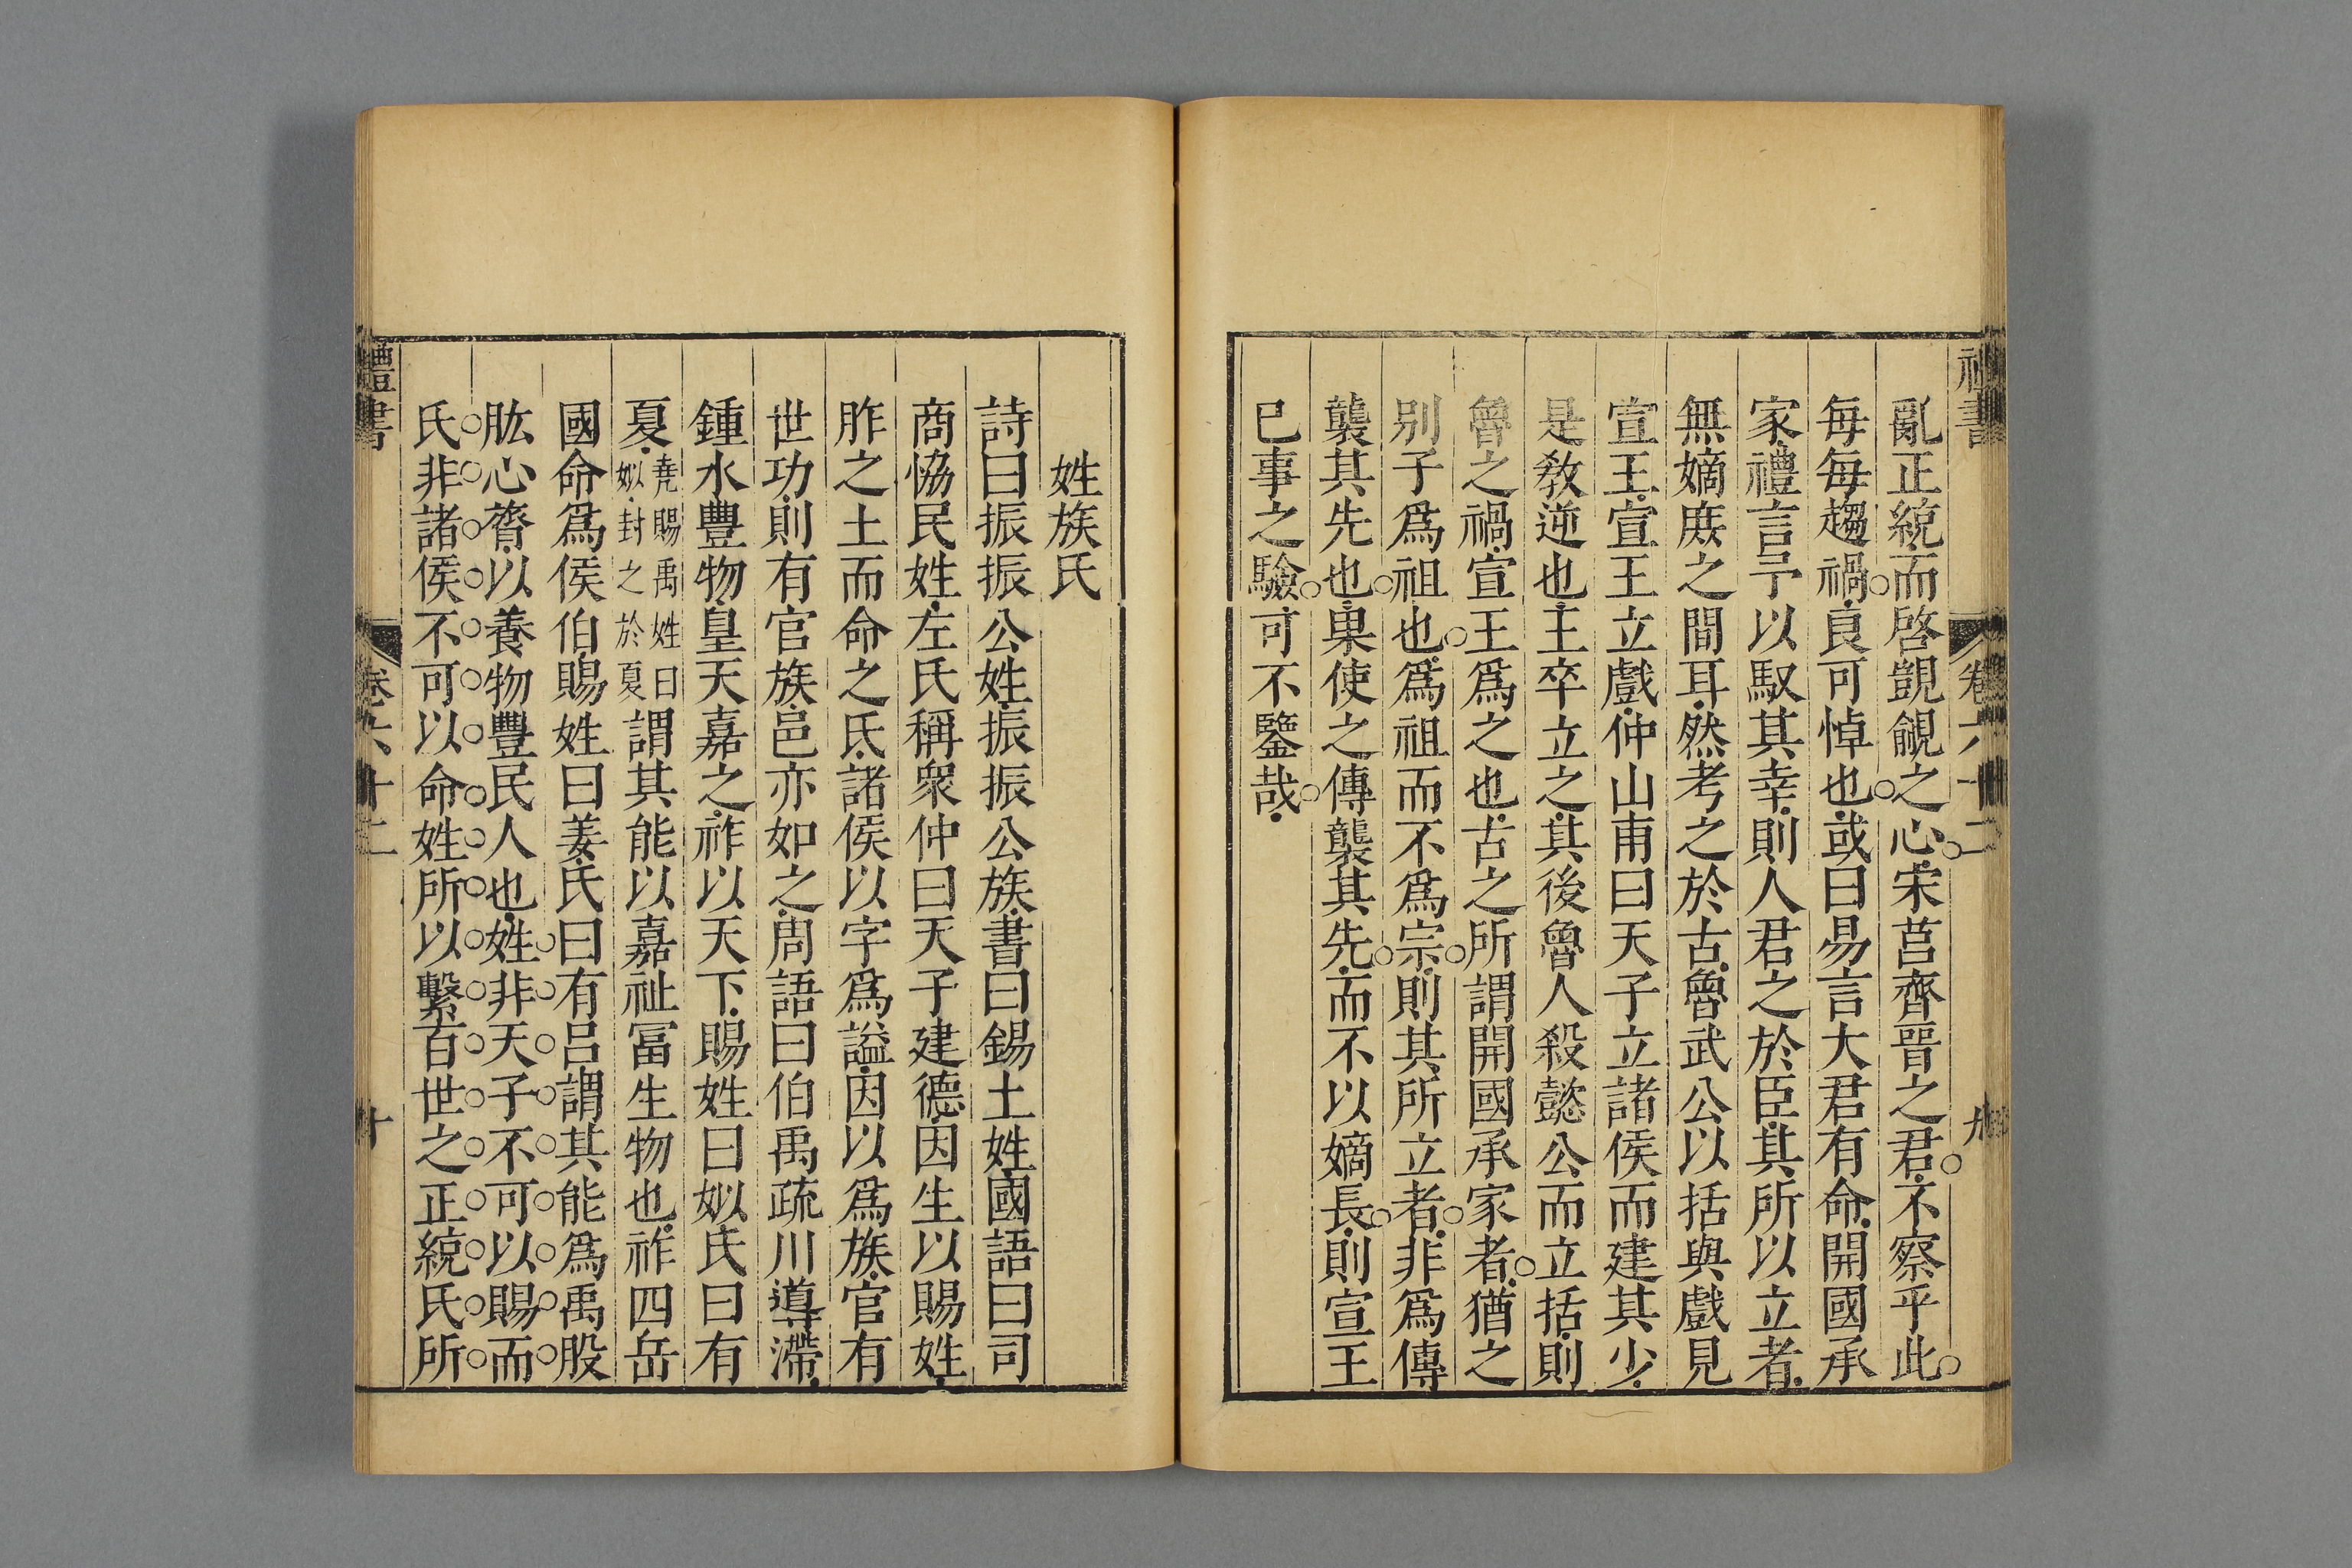 禮書
卷六十二
九
亂正統而啓覬覦之心宋莒齊晉之君不察乎此
每每趨禍良可悼也或曰易言大君有命開國承
家禮言予以馭其幸則人君之於臣其所以立者
無嫡庶之間耳然考之於古魯武公以括與戲見
宣王宣王立戲仲山甫曰天子立諸侯而建其少
是教逆也王卒立之其後魯人殺懿公而立括則
魯之禍宣王爲之也古之所謂開國承家者猶之
別子爲祖也爲祖而不爲宗則其所立者非爲傳
襲其先也果使之傳襲其先而不以嫡長則宣王
已事之驗可不鑒哉
姓族氏
詩曰振振公姓振振公族書曰錫土姓國語曰司
商恊民姓左氏稱衆仲曰天子建德因生以賜姓
胙之土而命之氏諸侯以字爲謚因以爲族官有
世功則有官族邑亦如之周語曰伯禹疏川導滯
鍾水豐物皇天嘉之祚以天下賜姓曰姒氏曰有
夏堯賜禹姓曰姒封之於夏謂其能以嘉祉冨生物也祚四岳
國命爲侯伯賜姓曰姜氏曰有呂謂其能爲禹股
肱心膂以養物豐民人也姓非天子不可以賜而
氏非諸侯不可以命姓所以繫百世之正統氏所
禮書
卷六十二
十